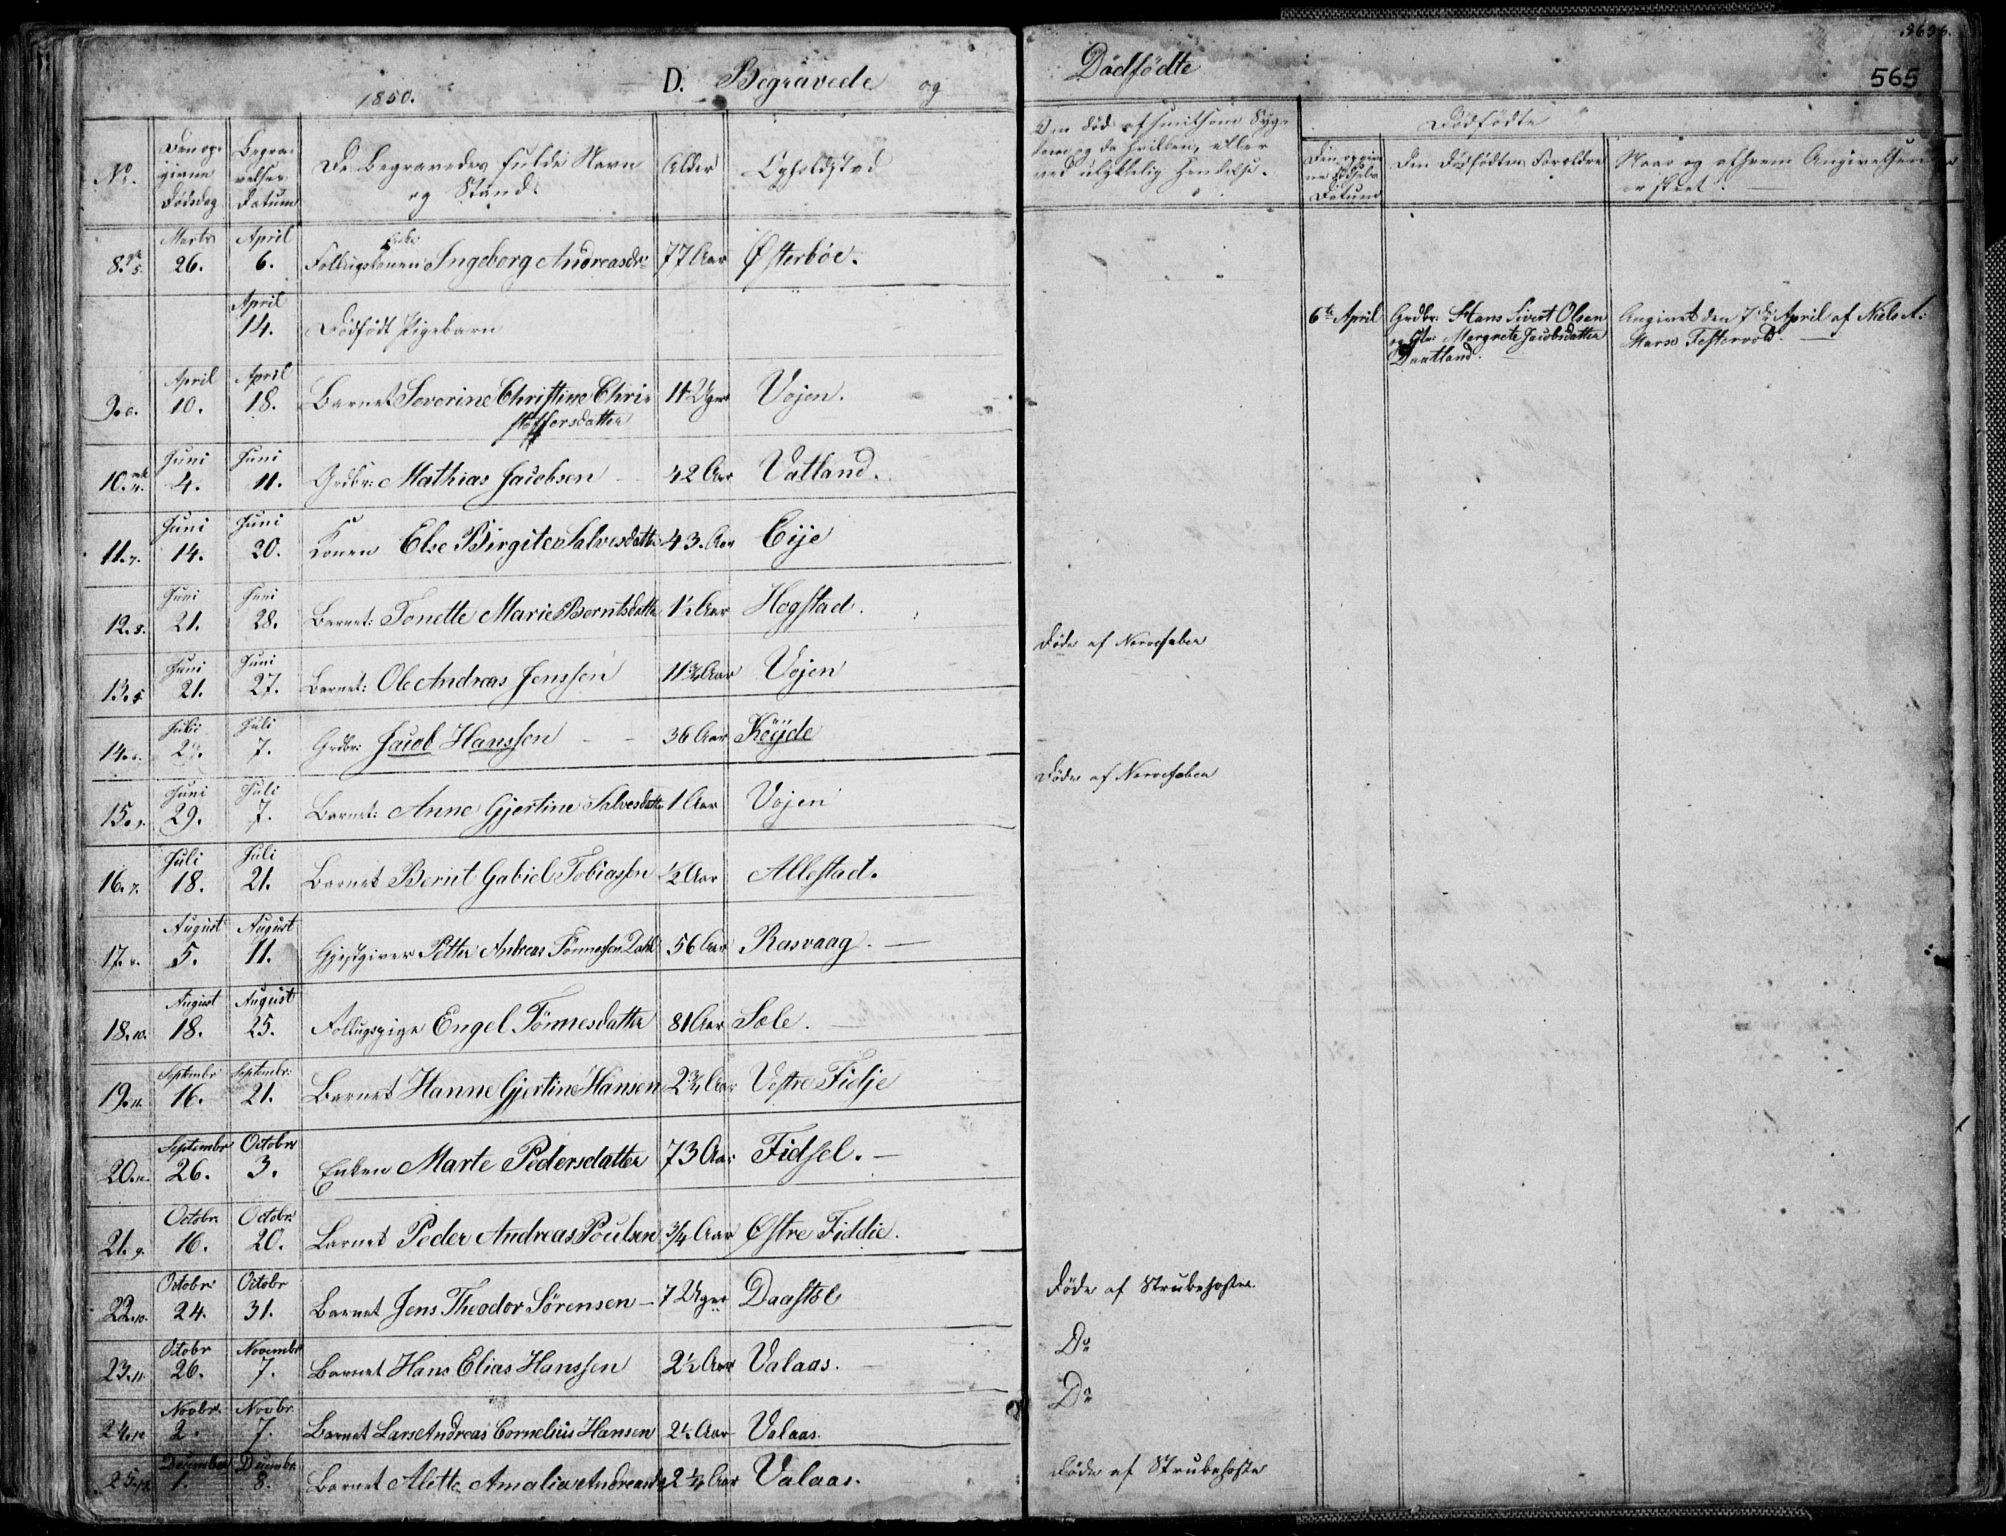 1850.
D. Begravede og
Dødfødte
565
No.
Den op-
givne
Dødsdag
Begra-
velses
Datum
De Begravedes fulde Navn
og Stand.
Alder
Opholdsted
Dødfødte
Den Dødfødtes Forældre
Naar og af hvem Angivelsen
er skeet.
8. Marts 26. April 6. Enke Ingeborg Andreasdr. 77 Aar Østerbøe.
April 14. Dødfødt Pigebarn
6te April Grdbr. Hans Sivert Olsen Angivet den 7de April af Niels A:
Margrete Jacobsdatter
9. April 10. April 18. Barnet Severine Christine Chri-
stoffersdatter
Uger Vojen.
10. Juni 4. Juni 11. Grdbr: Mathias Jacobsen 42 Aar Vatland.
11. Juni 14. Juni 20. Konen Else Birgite Salvesdatt: 43. Aar Eije
12. Juni 21. Juni 28. Barnet: Tonette Marie Berntsdatte 1½ Aar Hogstad.
Døde af Nervefeber
13. Juni 21. Juni 27. Barnet: Ole Andreas Jenssen 11¾ Aar Vojen
14. Juli 7. Grdbr: Jacob Hanssen 36 Aar Köyde
Døde af Nervefeber
15. Juni 29. Juli 7. Barnet: Anne Gjertine Salvesdatt: 1 Aar Vojen
16. Juli 18. Juli 21. Barnet Bernt Gabiel Tobiassen ½ Aar Allestad.
17. August 5. August 11. Gjestgiver Petter Andreas Tönnessen Dahl 56 Aar Rasvaag.
18. August 18. August 25. Engel Tönnesdatter 81 Aar Sole.
19. Septembr 16. Septembr: 21. Barnet Hanne Gjertine Hansen 2¾ Aar Vestre Fidje
20. Septembr 26. Octobr 3. Enken Marte Pedersdatter 73 Aar Fidsel.
21. Octobr. 16. Octobr. 20. Barnet Peder Andreas Poulsen ¾ Aar Østre Fiddie.
22. Octobr. 24. Octobr 31. Barnet Jens Theodor Sörensen 7 Uger Daastöl
Døde af Strubehoste.
23. Octobr 26. Novembr 7. Barnet Hans Elias Hanssen 2½ Aar Valaas.
Do
24. Novbr. 2. Novbr. 7. Barnet Lars Andreas Cornelius Hansen 2½ Aar Valaas.
Do
25. December 1. Decembr. 8. Barnet Alette Amalia Andreasd 2½ Aar Valaas.
Døde af Strubehoste